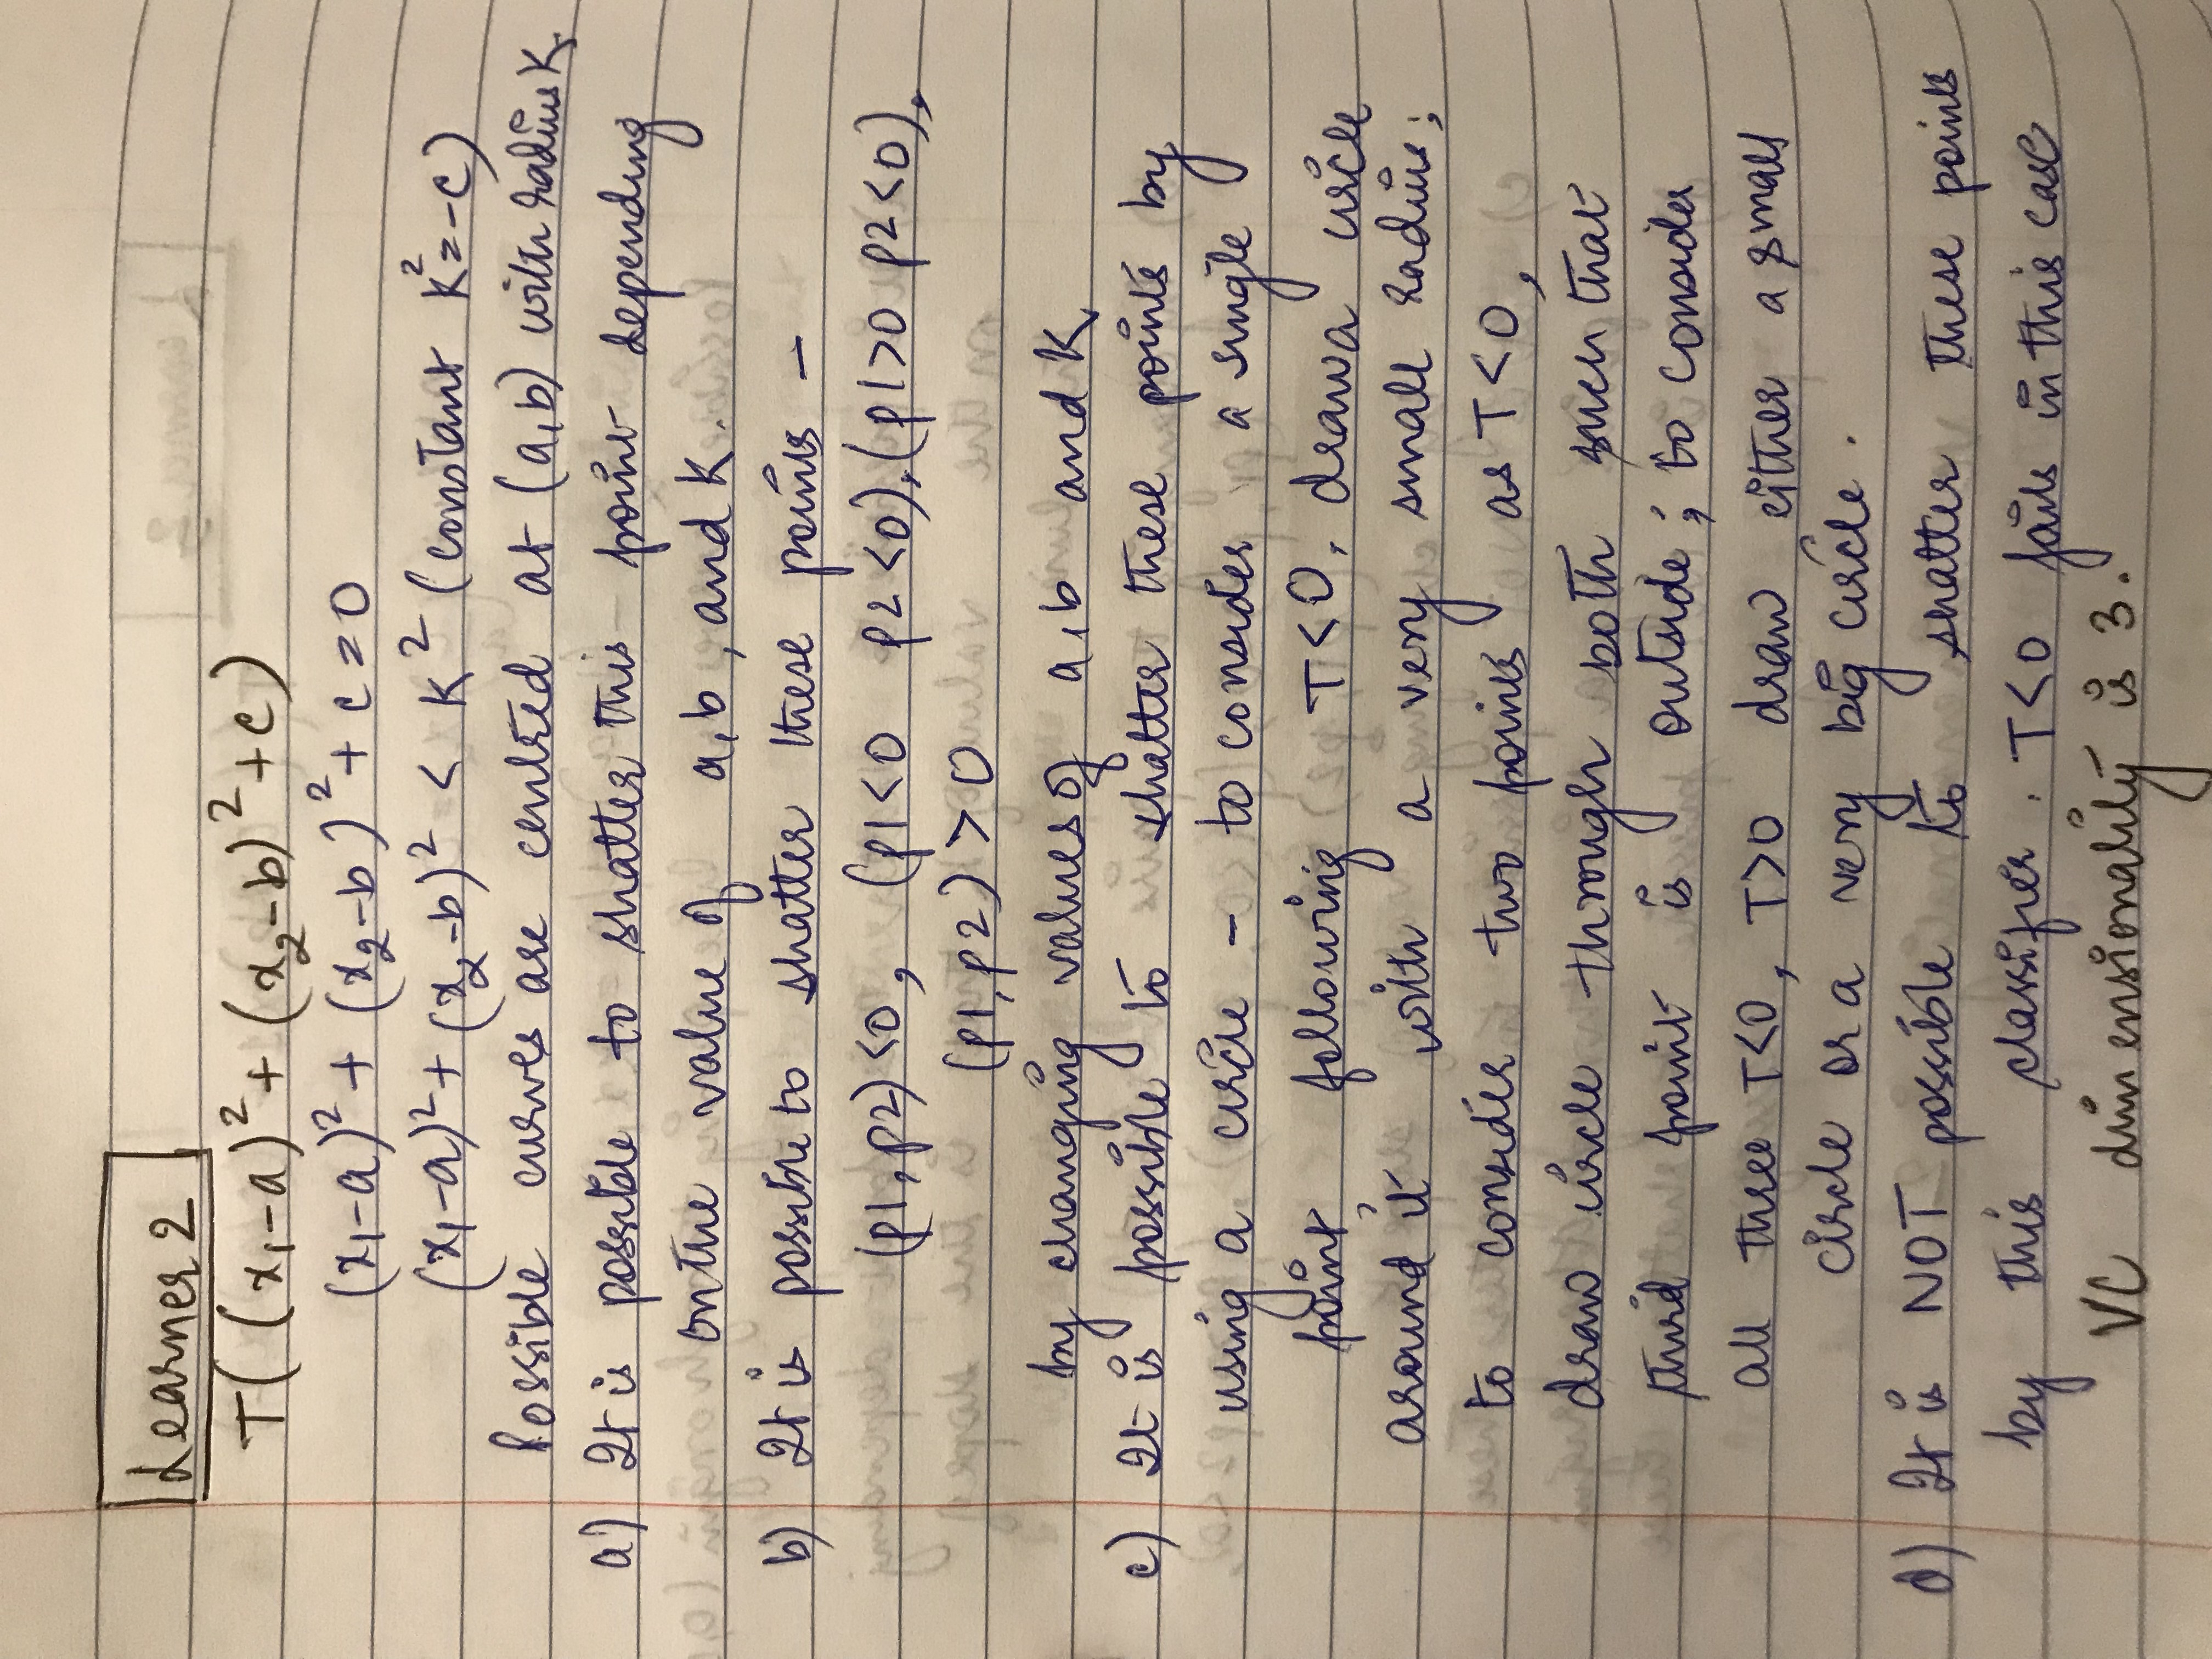 Learner 2
T((x₁-a)²+(x₂-b)²+c)
(x₁-a)²+(x₂-b)²+c=0
(x₁-a)²+(x₂-b)² < K² (constant K²=-c)
Possible curves are centred at (a,b) with radius K.
a) It is possible to shatter this point depending
on the value of a,b, and K.
b) It is possible to shatter these points -
(p1,p2)<0, (p1<0 p2<0),(p1>0 p2<0),
(p1,p2)>0
by changing values of a,b and K
c) It is possible to shatter these points by
using a circle - to consider a single
point, following T<0, draw a circle
around it with a very small radius;
to consider two points as T<0,
draw circle through both such that
third point is outside; to consider
all three T<0, T>0 draw either a small
circle or a very big circle.
d) It is NOT possible to shatter these points
by this classifier. T<0 fails in this case
VC dimensionality is 3.